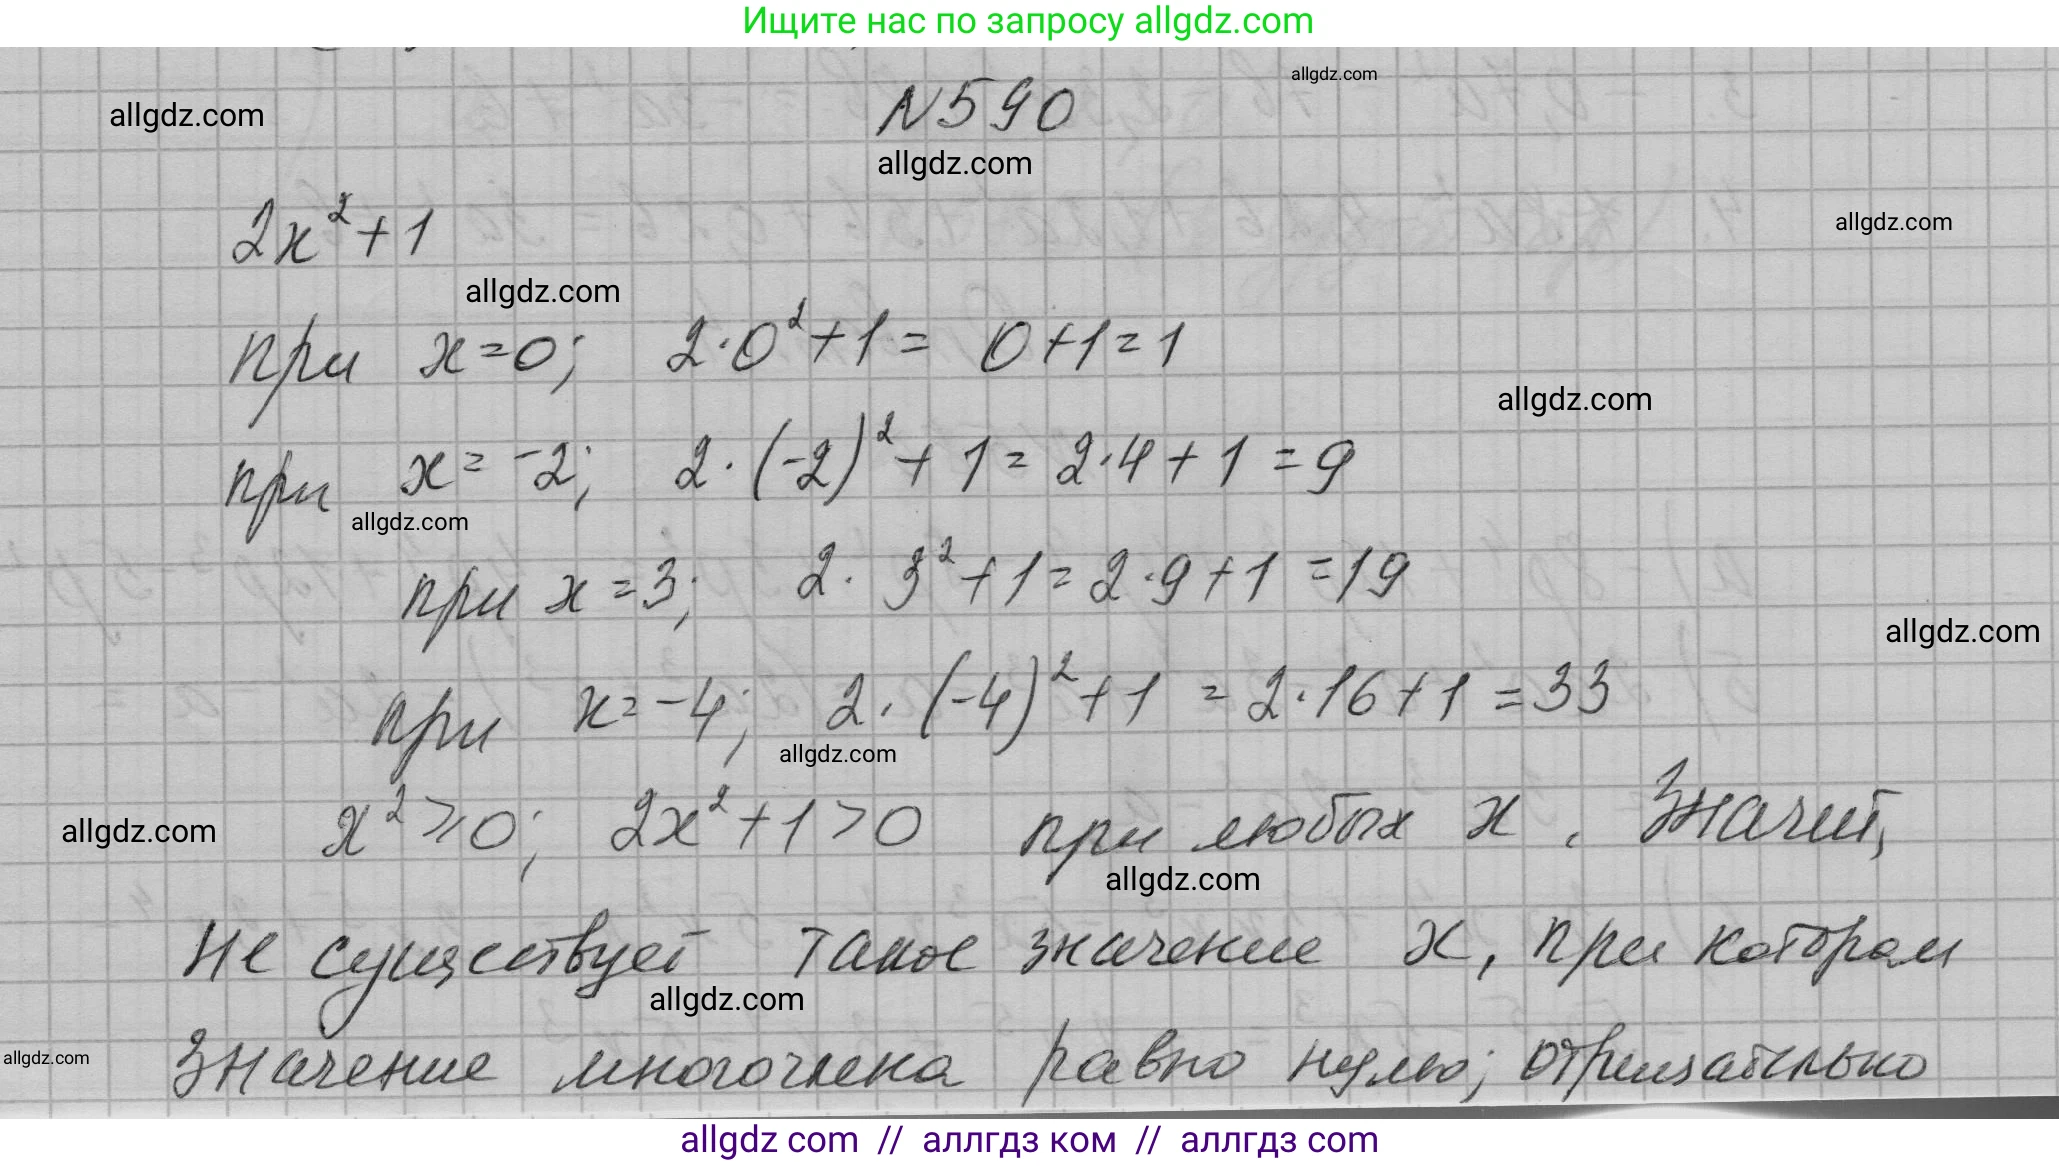 Ищите нас по запросу allgdz.com
allgdz.com
N590
allgdz.com
allgdz.com
2x²+1
allgdz.com
allgdz.com
при x=0; 2·0²+1= 0+1=1
allgdz.com
при x=-2; 2·(-2)²+1=2·4+1=9
allgdz.com
при x=3; 2·3²+1=2·9+1=19
allgdz.com
при x=-4; 2·(-4)²+1=2·16+1=33
allgdz.com
allgdz.com
x²⩾0; 2x²+1>0 при любых x. Значит,
allgdz.com
не существует такое значение x, при котором
allgdz.com
значение многочлена равно нулю; отрицательно
allgdz.com
allgdz com // аллгдз ком // аллгдз com